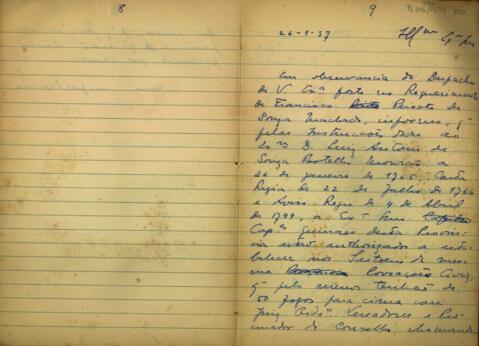 8
9
26-1-37
Illmo Exmo Snr
Em observancia do Despacho
de V. Exa posto no Requerimento
de Francisco Peixoto de
Souza Machado, informo, q
pelas Instrucções dadas ao
Exmo D. Luiz Antonio de
Souza Botelho Mourão a
26 de janeiro de 1765, Carta
Regia de 22 de Julho de 1766
e Avizo Regio de 4 de Abril
de 1799, o Exmo Snr.
Capm Generaes desta Provin
cia estão authorizados a estabe
lecer nos Sertoens da mes
ma Povoações Civiz,
q pelo menos tenhão de
50 fogos para cima com
Juiz Ordo Vereadores e Pro
curador do Conselho, chamando